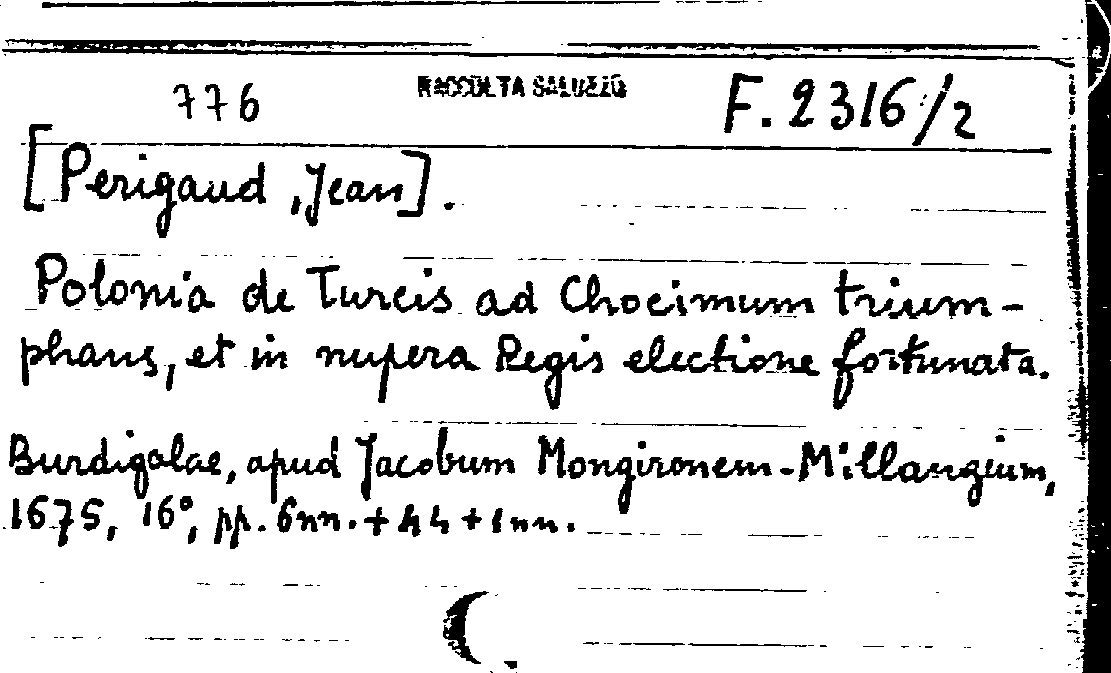 776 RACCOLTA SALUZZO F. 2316/2
[Perigaud, Jean].
Polonia de Turcis ad Chocimum trium-
phans, et in nupera Regis electione fortunata.
Burdigalae, apud Jacobum Mongironem-Millangium,
1675, 16°, pp. 6nn. + 44 + 1nn.